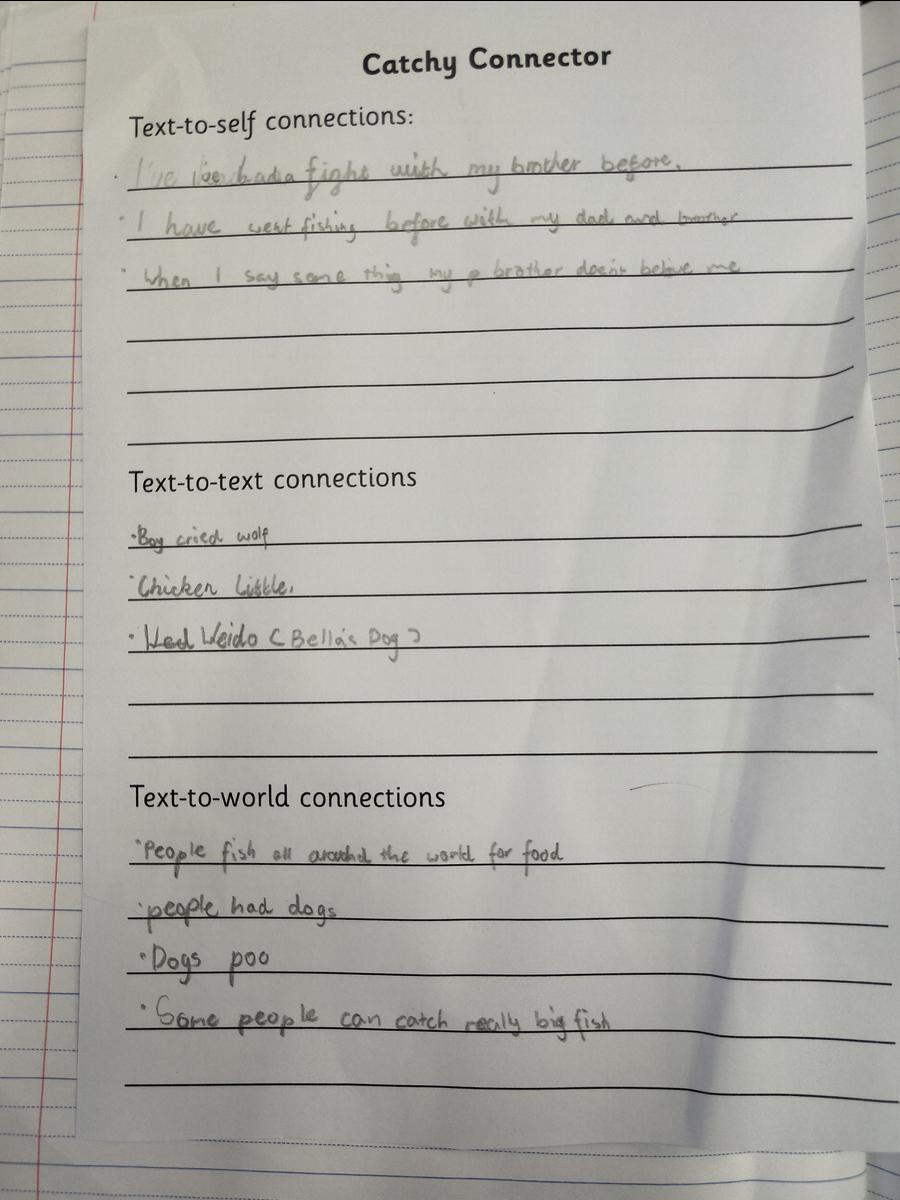 Catchy Connector
Text-to-self connections:
· I've had a fight with my brother before.
· I have went fishing before with my dad and brother
· When I say some thig my brother doesn't
Text-to-text connections
· Boy cried wolf
· Chicken Little.
· Weido ( Bella's Dog )
Text-to-world connections
· People fish all around the world for food
· people had dogs
· Dogs poo
· Some people can catch really big fish